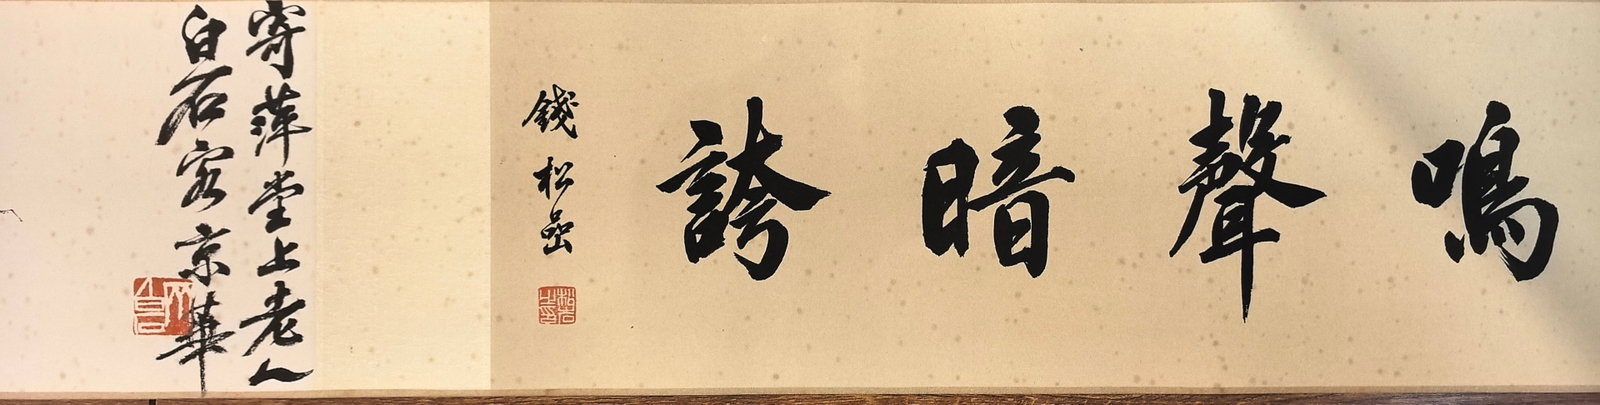 鳴聲暗誇
錢松嵒
寄萍堂上老人
白石客京華